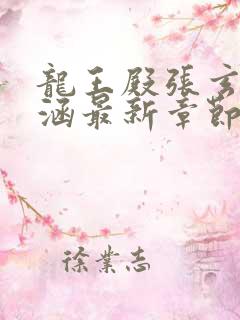 龍王殿張玄
涵最新章節
徐業志